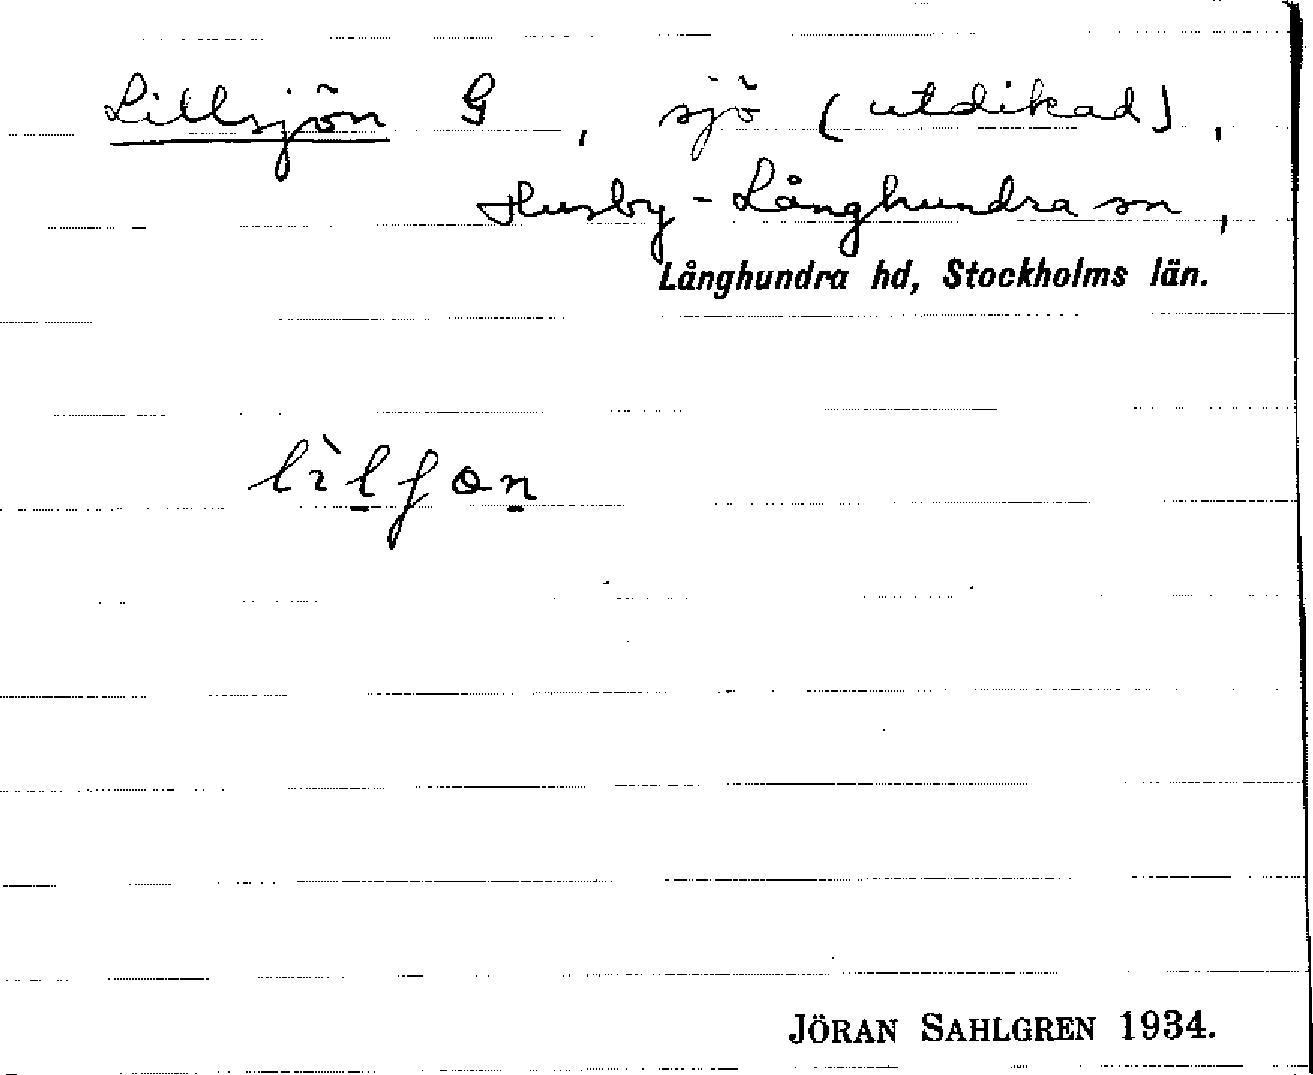 Lillsjön G, sjö (utdikad),
Husby-Långhundra sn,
Långhundra hd, Stockholms län.
lìl̠ʃɵn̠
JÖRAN SAHLGREN 1934.